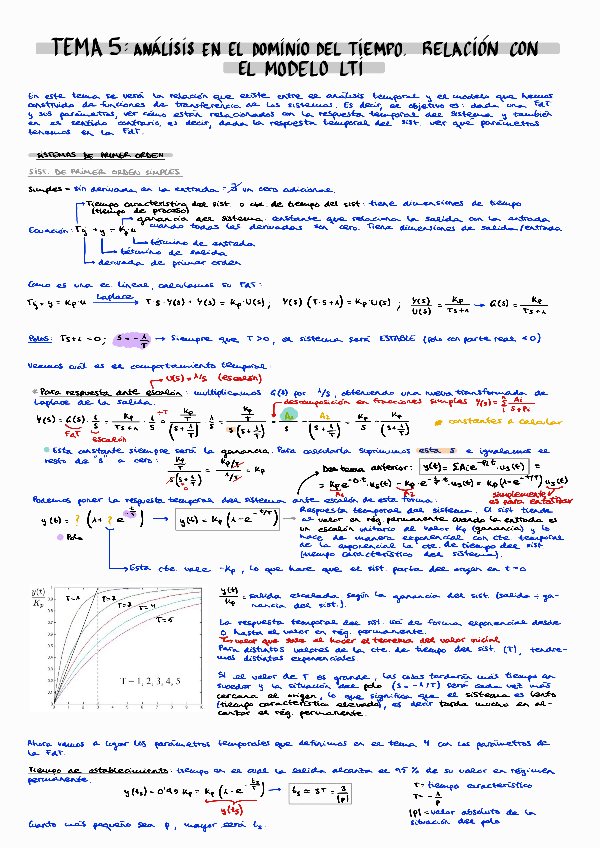 TEMA 5: ANÁLISIS EN EL DOMINIO DEL TIEMPO. RELACIÓN CON
EL MODELO LTI
En este tema se verá la relación que existe entre el análisis temporal y el modelo que hemos
construido de funciones de transferencia de los sistemas. Es decir, el objetivo es: dada una FdT
y sus parámetros, ver cómo están relacionados con la respuesta temporal del sistema y también
en el sentido contrario, es decir, dada la respuesta temporal del sist. ver que parámetros
tenemos en la FdT.
SISTEMAS DE PRIMER ORDEN
SIST. DE PRIMER ORDEN SIMPLES
Simples = sin derivada en la entrada = ∄ un cero adicional.
Tiempo característico del sist. o cte. de tiempo del sist: tiene dimensiones de tiempo
(tiempo de proceso)
ganancia del sistema: constante que relaciona la salida con la entrada
cuando todas las derivadas son cero. Tiene dimensiones de salida/entrada
Ecuación: Tẏ + y = Kp·u
término de entrada
término de salida
derivada de primer orden
Como es una ec. lineal, calculamos su FdT:
Tẏ + y = Kp·u Laplace → T·S·Y(S) + Y(S) = Kp·U(S); Y(S)(T·S+1) = Kp·U(S); Y(S)/U(S) = Kp/(TS+1) → G(S) = Kp/(TS+1)
Polos: TS+1 = 0; S = -1/T → Siempre que T>0, el sistema será ESTABLE (polo con parte real <0)
Veamos cuál es el comportamiento temporal
U(S) = 1/S (escalón)
* Para respuesta ante escalón: multiplicamos G(S) por 1/S, obteniendo una nueva transformada de
Laplace de la salida.
descomposición en fracciones simples
Y(S) = G(S)·1/S = Kp/(TS+1)·1/S = (Kp/T)/(S+1/T)·1/S = (Kp/T)/(S(S+1/T)) = A1/S + A2/(S+1/T) = Kp/S - Kp/(S+1/T)
constantes a calcular
FdT escalón
Esta constante siempre será la ganancia. Para calcularla suprimimos esta S e igualamos el
resto de "S" a cero:
Del tema anterior:
Podemos poner la respuesta temporal del sistema ante escalón de esta forma:
simplemente
es para entenderlo
y(t) = ? (1 + ? e^(-t/T)) → y(t) = Kp(1-e^(-t/T)) →
Polo
Respuesta temporal del sistema. El sist tiende
al valor en rég. permanente cuando la entrada es
un escalón unitario al valor Kp (ganancia) y lo
hace de manera exponencial con cte temporal
de la exponencial la cte. de tiempo del sist
(tiempo característico del sistema).
Esta cte vale -Kp, lo que hace que el sist. parta del origen en t=0
y(t)/Kp
T=1 T=2 T=3 T=4 T=5
T = 1, 2, 3, 4, 5
y(t)/Kp = salida escalada según la ganancia del sist. (salida ÷ ga-
nancia del sist.).
La respuesta temporal del sist. va de forma exponencial desde
0 hasta el valor en rég. permanente.
valor que sale al hacer el teorema del valor inicial
Para distintos valores de la cte. de tiempo del sist. (T), tendre-
mos distintas exponenciales.
Si el valor de T es grande, las cosas tardarán más tiempo en
suceder y la situación del polo (S=-1/T) será cada vez más
cercana al origen, lo que significa que el sistema es lento
(tiempo característico elevado), es decir tarda mucho en al-
canzar el rég. permanente.
Ahora vamos a ligar los parámetros temporales que definimos en el tema 4 con los parámetros de
la FdT.
Tiempo de establecimiento: tiempo en el cual la salida alcanza el 95% de su valor en régimen
permanente.
y(ts) = 0'95 Kp = Kp(1-e^(-ts/T)) → ts ≃ 3T = 3/|P|
y(ts)
T = tiempo característico
T = -1/P
|P| = valor absoluto de la
situación del polo
Cuanto más pequeño sea p, mayor será ts